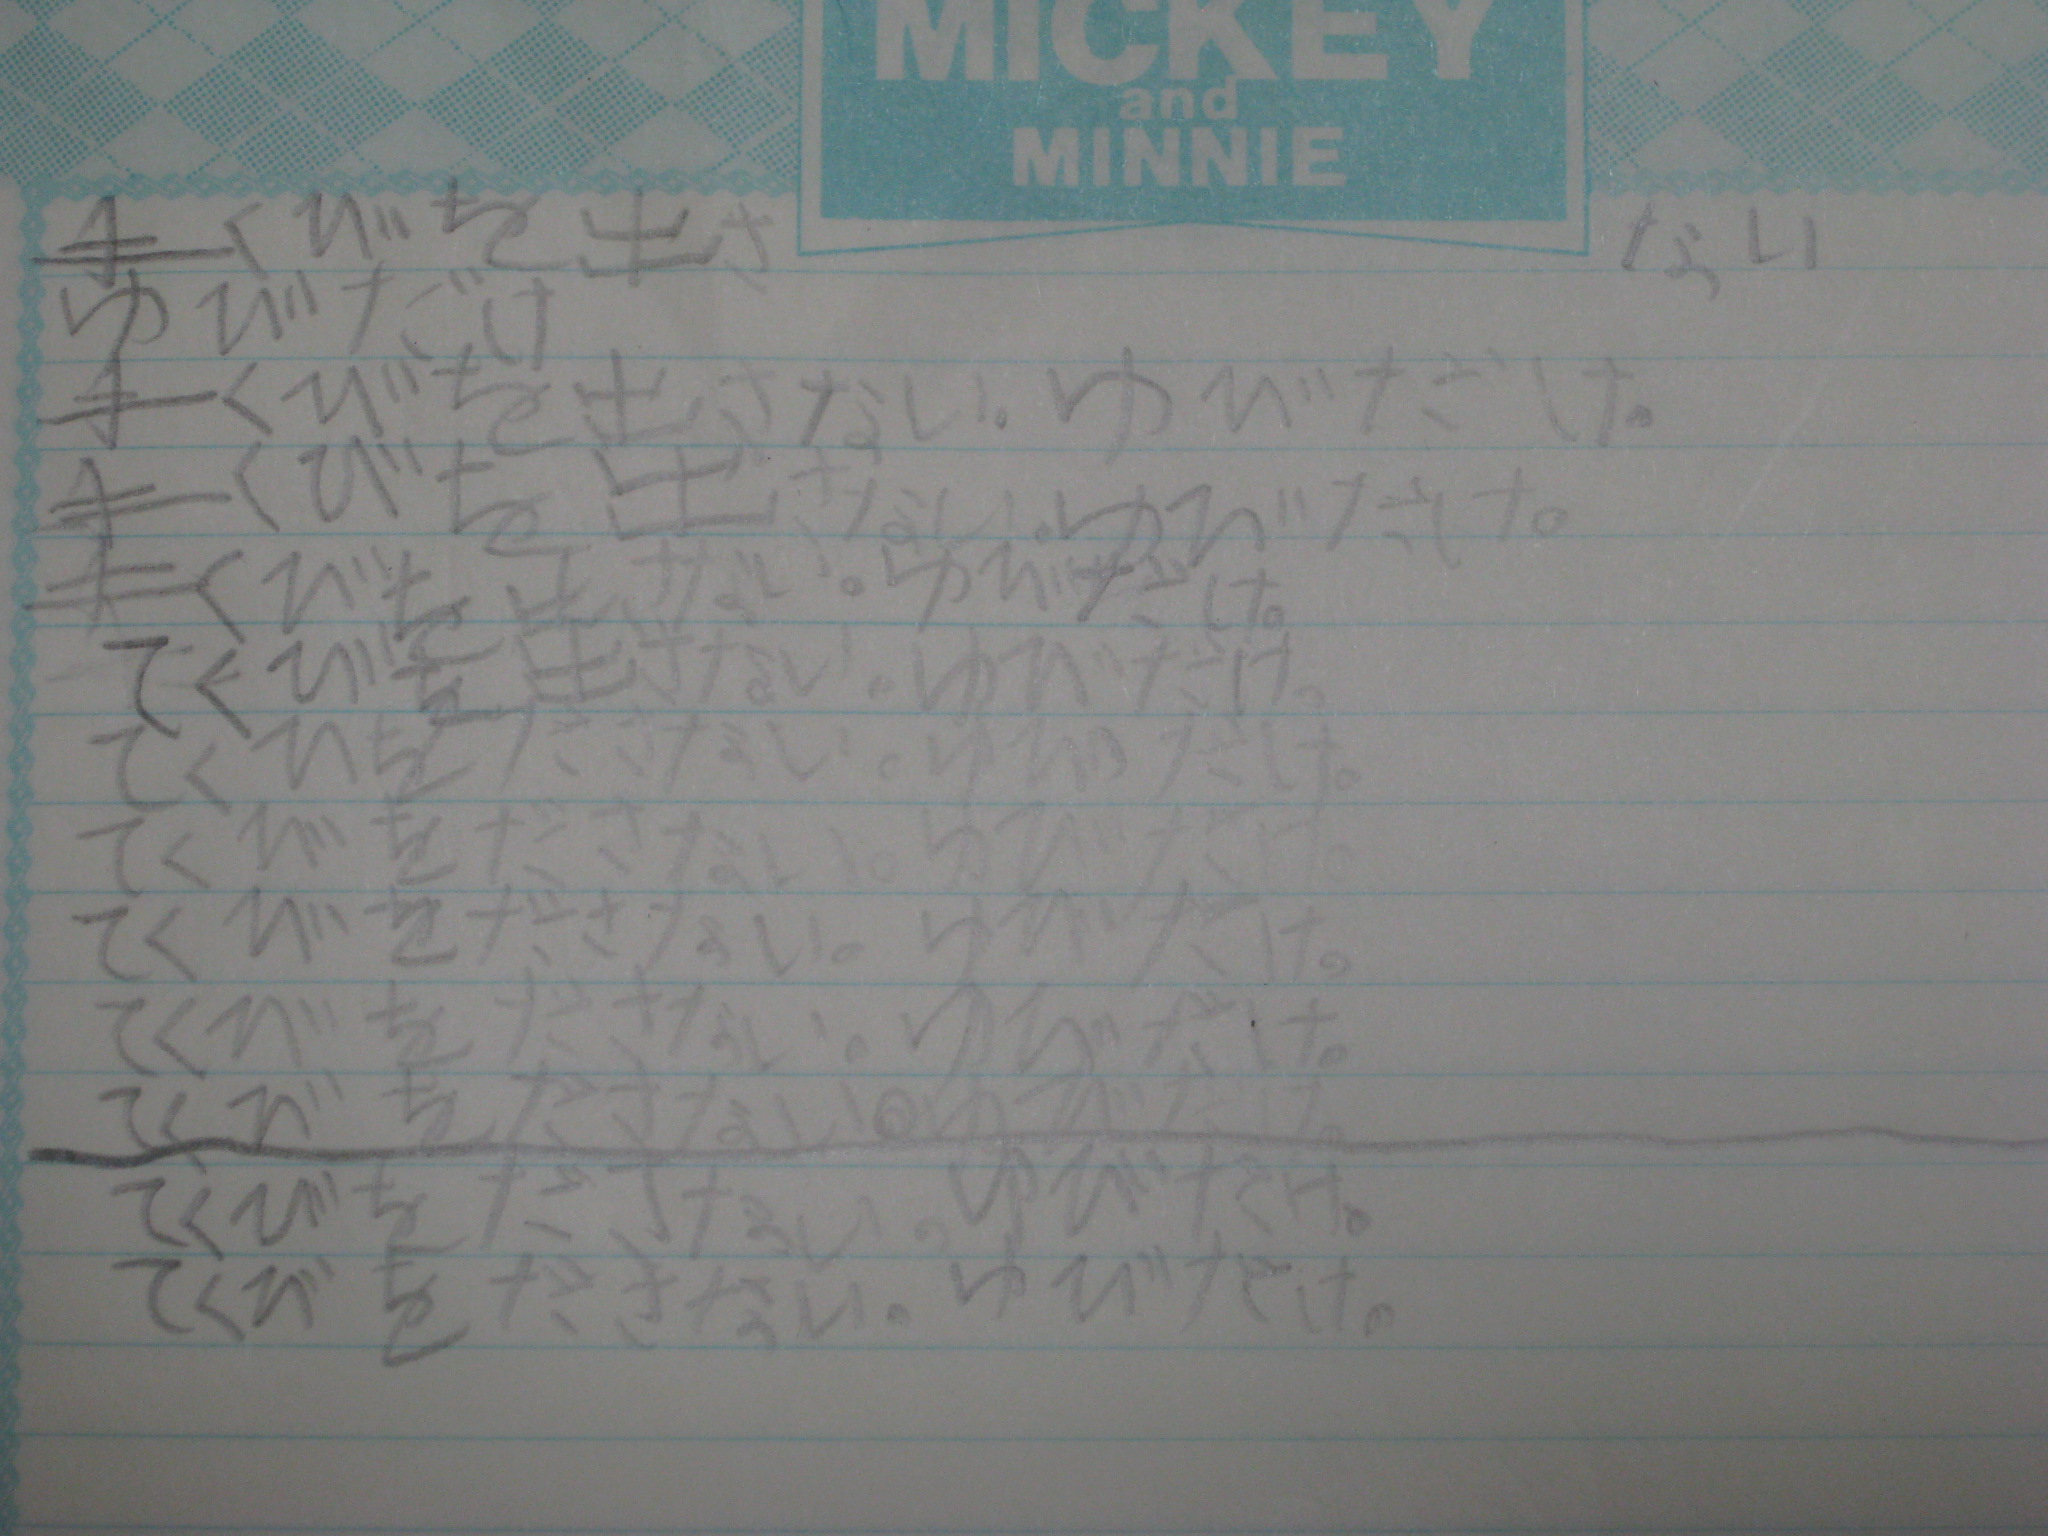 MICKEY
and
MINNIE
手くびを出さ ない
ゆびだけ
手くびを出さない。ゆびだけ。
手くびを出さない。ゆびだけ。
手くびを出さない。ゆびだけ。
てくびを出さない。ゆびだけ。
てくびをださない。ゆびだけ。
てくびをださない。ゆびだけ。
てくびをださない。ゆびだけ。
てくびをださない。ゆびだけ。
てくびをださない。ゆびだけ。
てくびをださない。ゆびだけ。
てくびをださない。ゆびだけ。